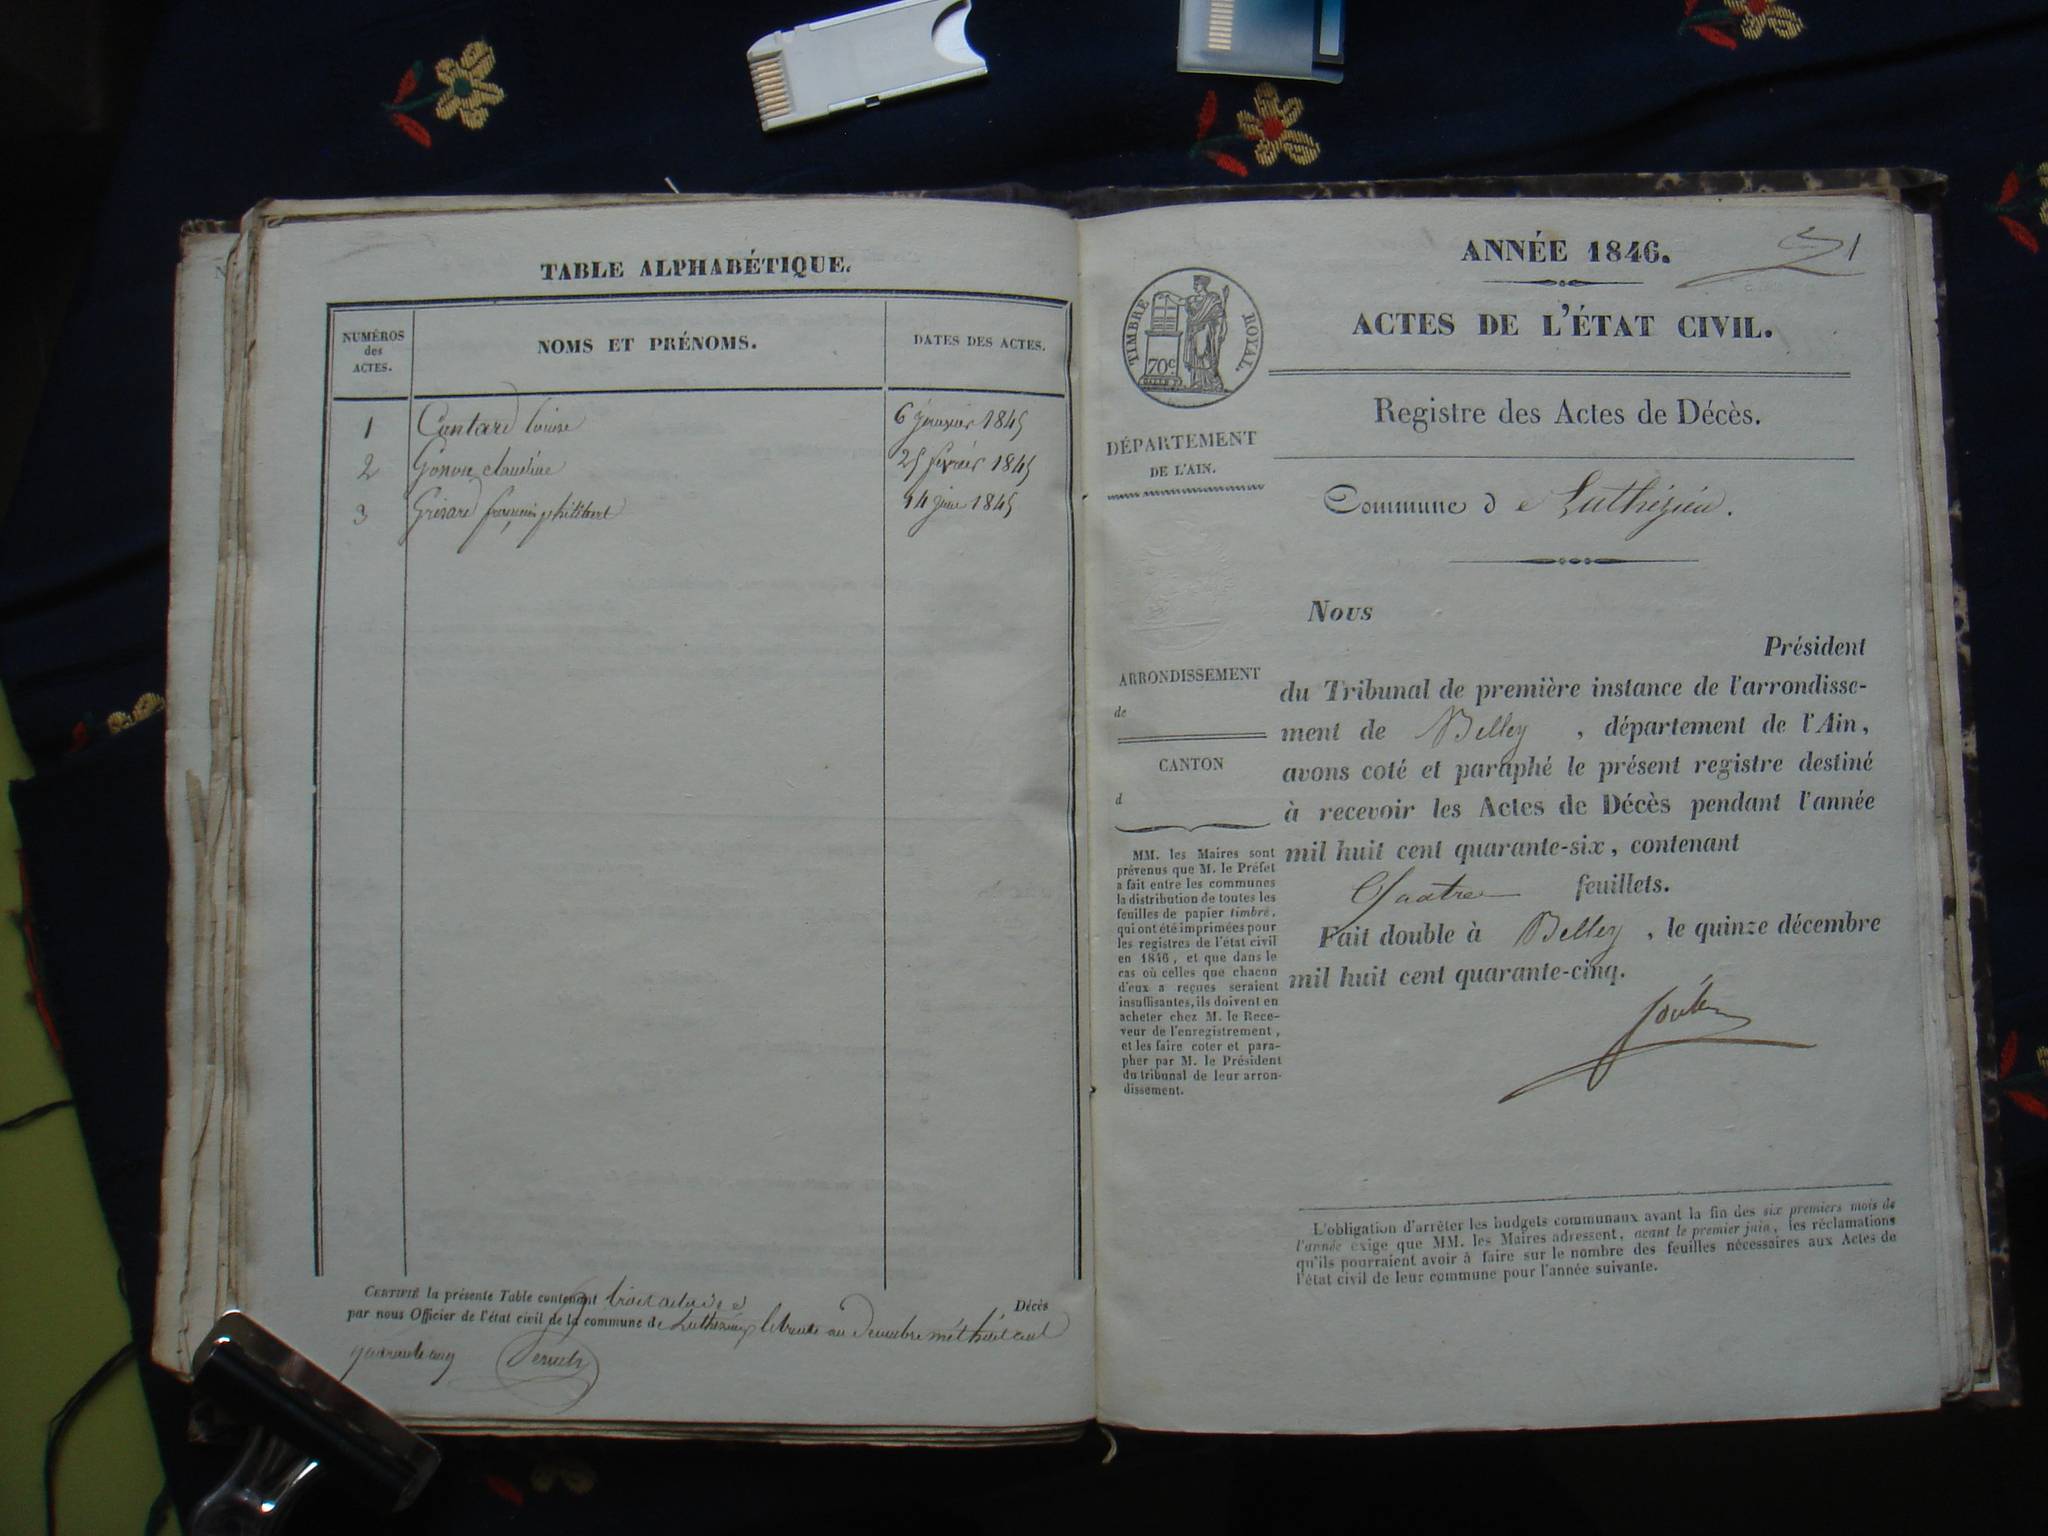 TABLE ALPHABÉTIQUE.
NUMÉROS
des
ACTES.
NOMS ET PRÉNOMS.
DATES DES ACTES.
1 Cantard louise 6 janvier 1845
2 Gonon claudine 25 février 1845
3 Grisard françois philibert 14 juin 1845
CERTIFIÉ la présente Table contenant trois actes de Décès
par nous Officier de l'état civil de la commune de Luthézieu le trente un Decembre mil huit cent
quarante cinq
ANNÉE 1846.
1
ACTES DE L'ÉTAT CIVIL.
TIMBRE ROYAL.
70c
Registre des Actes de Décès.
DÉPARTEMENT
DE L'AIN.
Commune de Luthézieu.
Nous
Président
du Tribunal de première instance de l'arrondisse-
ment de Belley, département de l'Ain,
avons coté et paraphé le présent registre destiné
à recevoir les Actes de Décès pendant l'année
mil huit cent quarante-six, contenant
Quatre feuillets.
Fait double à Belley, le quinze décembre
mil huit cent quarante-cinq.
ARRONDISSEMENT
de
CANTON
d
MM. les Maires sont
prévenus que M. le Préfet
a fait entre les communes
la distribution de toutes les
feuilles de papier timbré,
qui ont été imprimées pour
les registres de l'état civil
en 1846, et que dans le
cas où celles que chacun
d'eux a reçues seraient
insuffisantes, ils doivent en
acheter chez M. le Rece-
veur de l'enregistrement,
et les faire coter et para-
pher par M. le Président
du tribunal de leur arron-
dissement.
L'obligation d'arrêter les budgets communaux avant la fin des six premiers mois de
l'année exige que MM. les Maires adressent, avant le premier juin, les réclamations
qu'ils pourraient avoir à faire sur le nombre des feuilles nécessaires aux Actes de
l'état civil de leur commune pour l'année suivante.